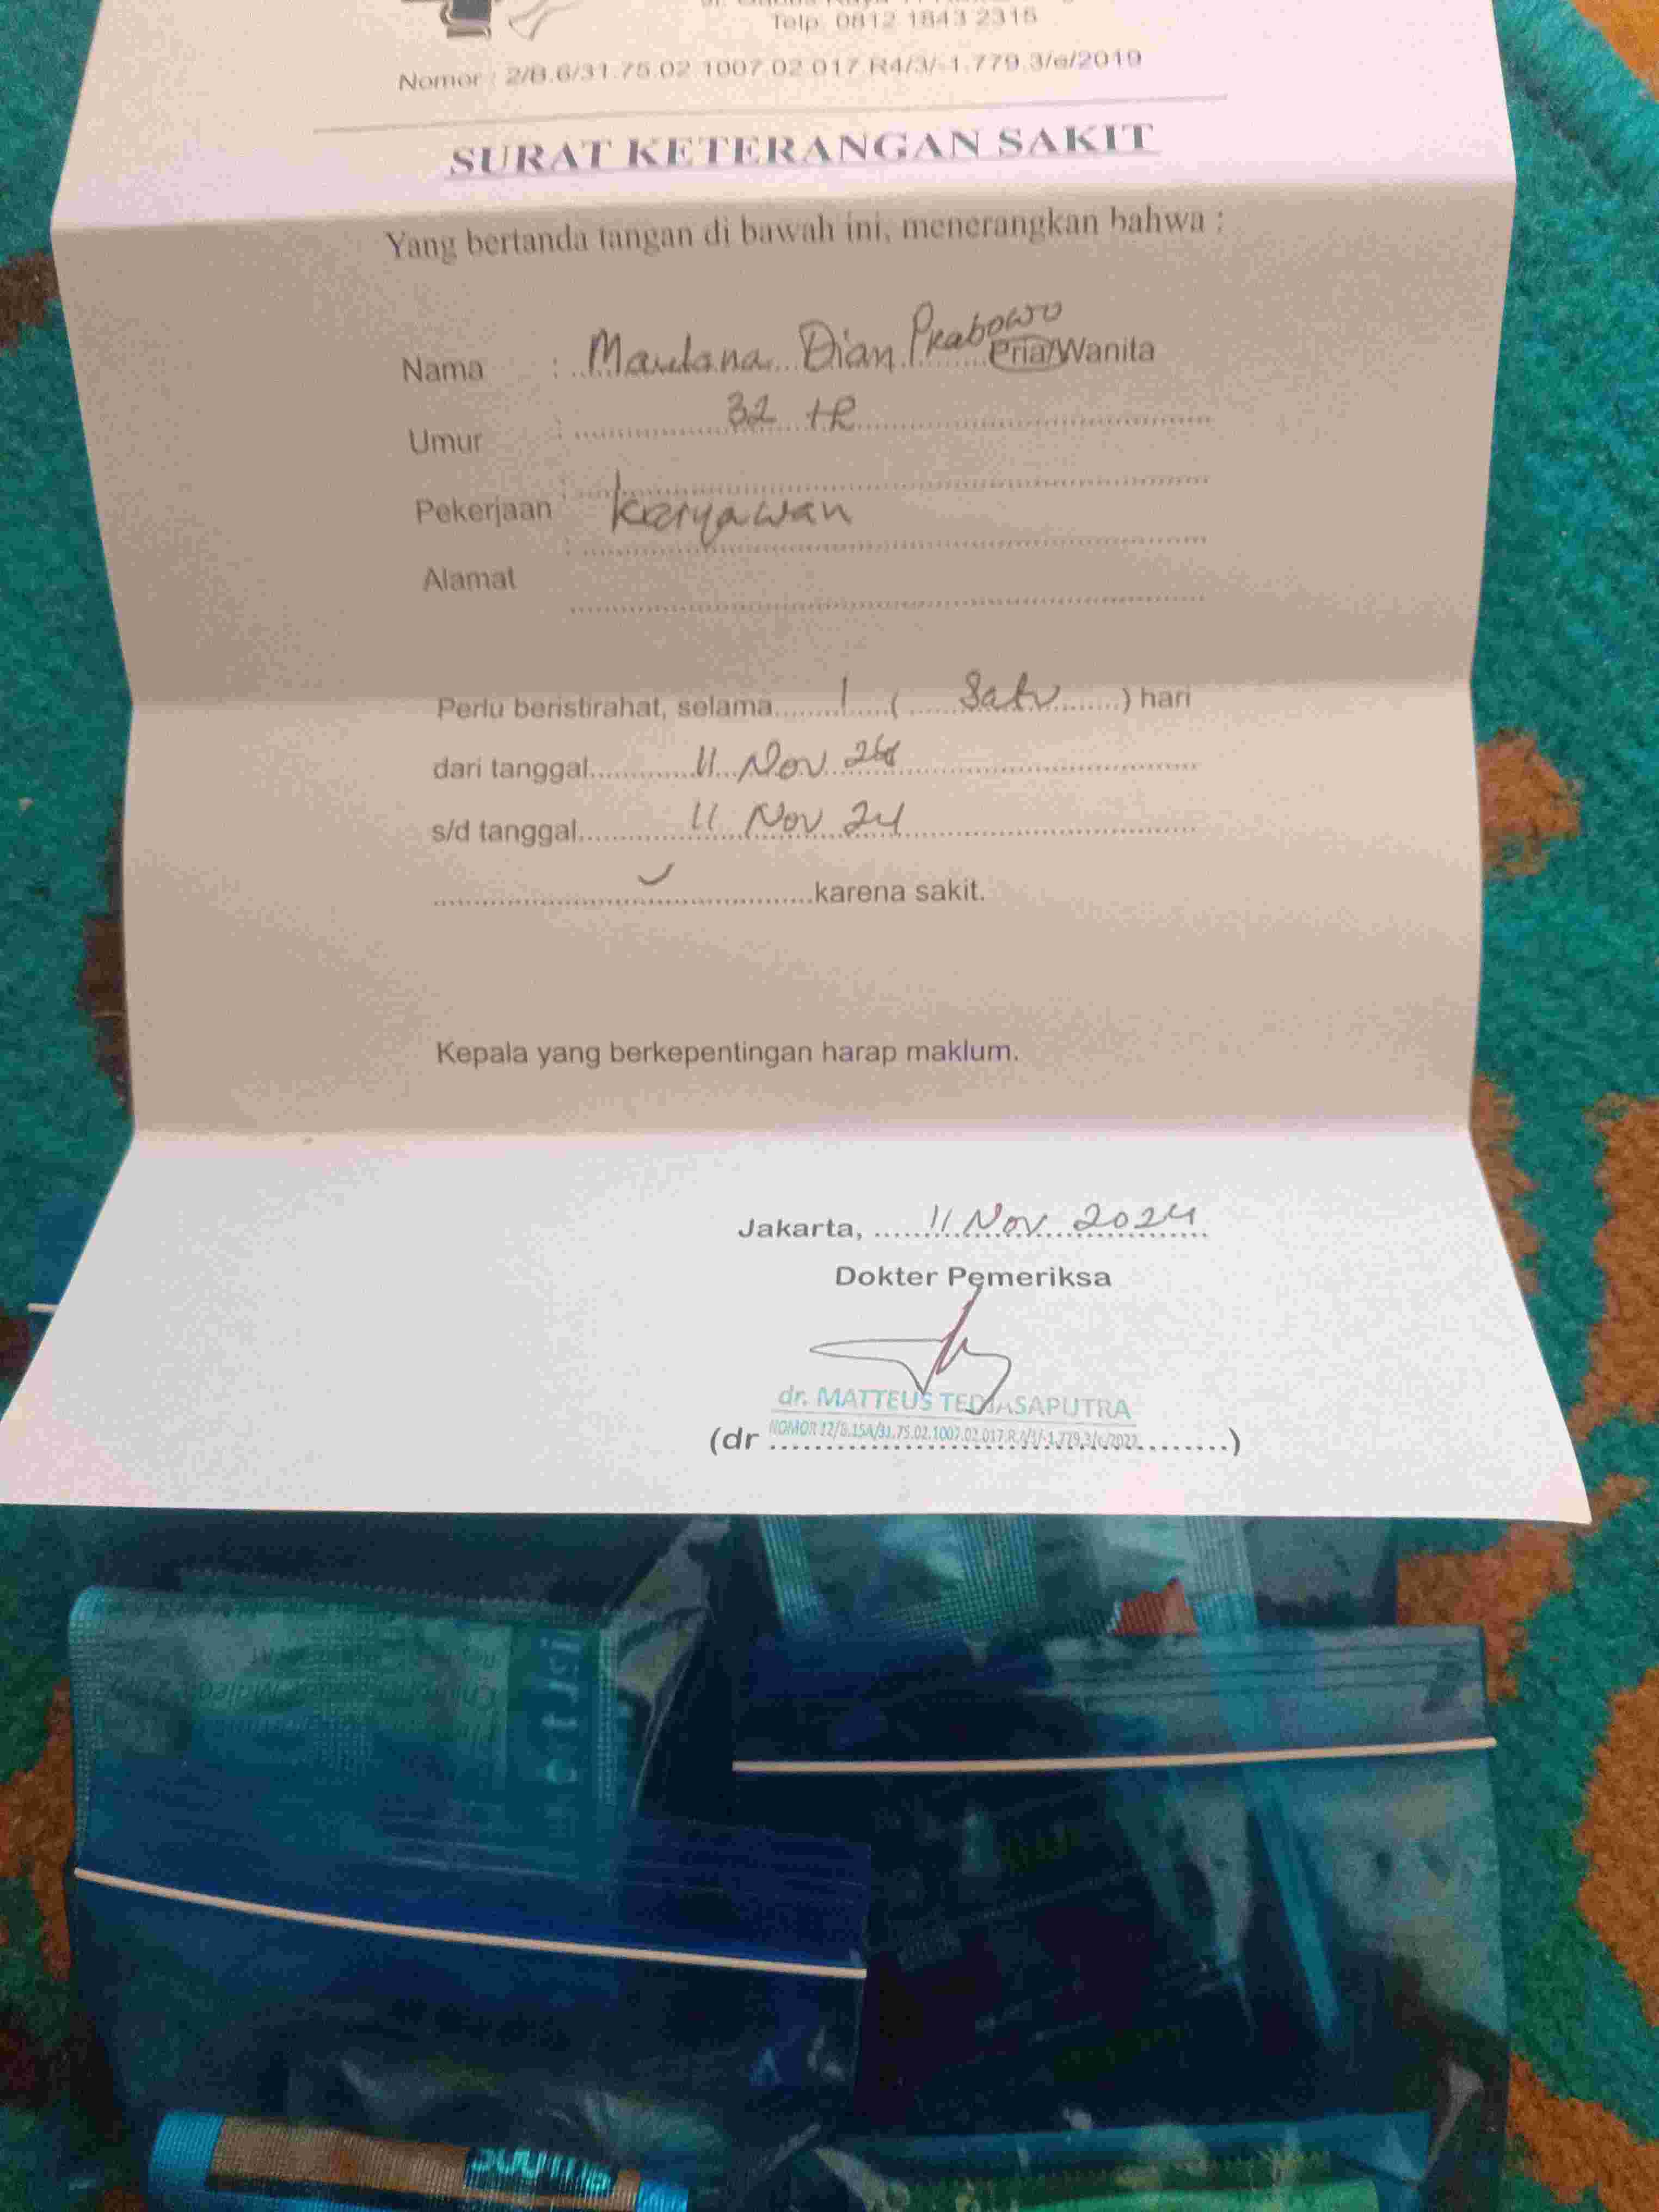 Telp. 0812 1843 2316
Nomor : 2/B.6/31.75.02.1007.02.017.R4/3/-1.779.3/e/2019
SURAT KETERANGAN SAKIT
Yang bertanda tangan di bawah ini, menerangkan bahwa :
Nama : Maulana Dian Prabowo Pria/Wanita
Umur : 32 th
Pekerjaan : karyawan
Alamat :
Perlu beristirahat, selama 1 ( Satu ) hari
dari tanggal 11 Nov 24
s/d tanggal 11 Nov 24
karena sakit.
Kepala yang berkepentingan harap maklum.
Jakarta, 11 Nov 2024
Dokter Pemeriksa
dr. MATTEUS TEDJASAPUTRA
(dr NOMOR 12/B.15A/31.75.02.1007.02.017.R.4/3/-1.779.3/e/2022 )